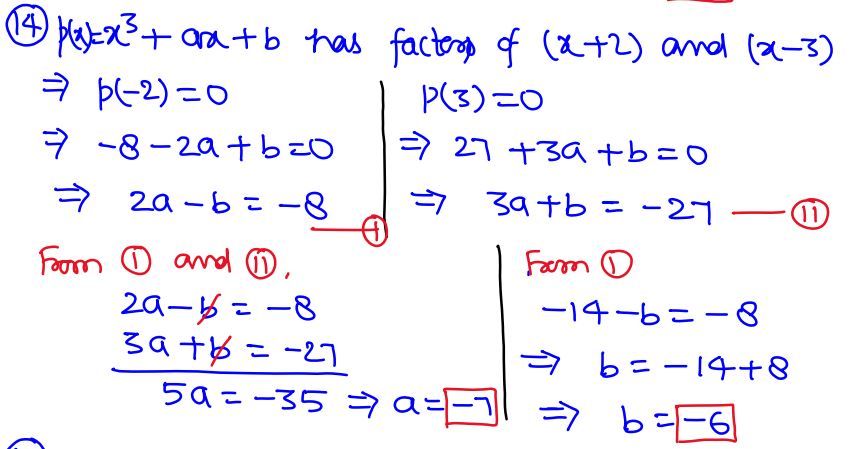 ⑭ p(x)=x³ + ax + b has factors of (x+2) and (x-3)
⇒ p(-2) = 0
⇒ -8 - 2a + b = 0
⇒ 2a - b = -8 —— ⓘ
p(3) = 0
⇒ 27 + 3a + b = 0
⇒ 3a + b = -27 —— ⓘⓘ
From ⓘ and ⓘⓘ,
2a - b = -8
3a + b = -27
5a = -35 ⇒ a = -7
From ⓘ
-14 - b = -8
⇒ b = -14 + 8
⇒ b = -6